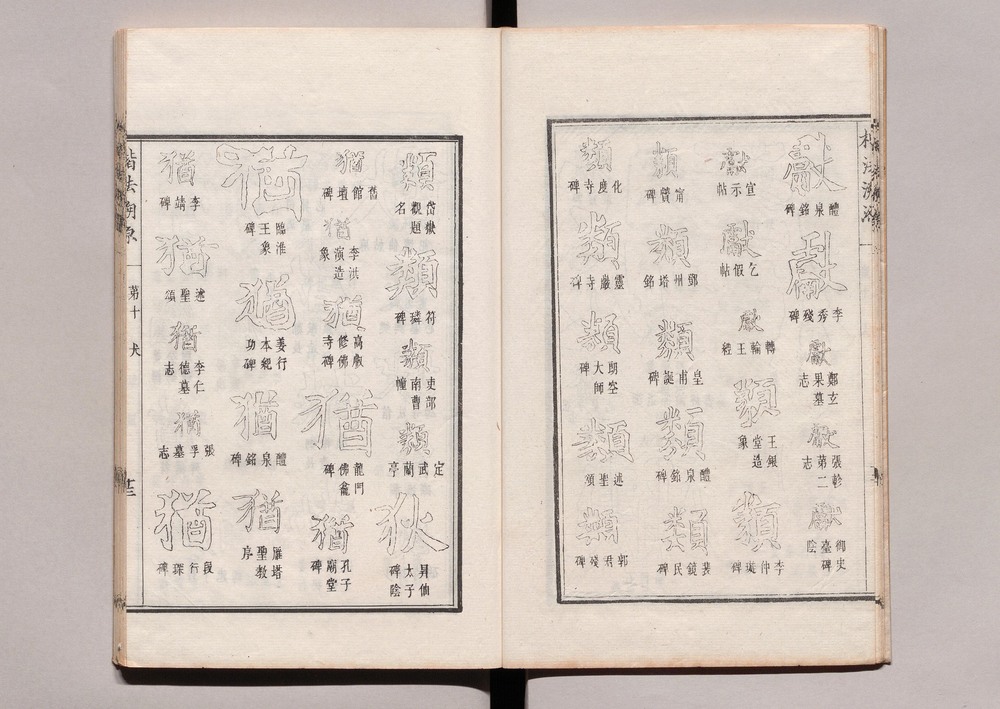 獻
醴泉銘碑
獻
李秀殘碑
獻
鄭玄果墓志
獻
張軫第二志
獻
御史臺碑陰
獻
宣示帖
獻
乞假帖
獻
轉輪王經
類
王銀堂造象
類
李仲璇碑
類
甯贙碑
類
鄧州塔銘
類
皇甫誕碑
類
醴泉銘碑
類
裴鏡民碑
類
化度寺碑
類
靈巖寺碑
類
大師
類
述聖頌
類
郭君殘碑
類
岱嶽觀題名
類
符璘碑
類
吏部南曹幢
類
定武蘭亭
狄
昇仙太子碑陰
猶
舊館壇碑
猶
李洪演造象
猶
高叡修佛寺碑
猶
龍門佛龕碑
猶
孔子廟堂碑
猶
臨淮王象碑
猶
姜行本紀功碑
猶
醴泉銘碑
猶
雁塔聖教序
猶
李靖碑
猶
述聖頌
猶
李仁德墓志
猶
張孚墓志
猶
段行琛碑
楷法溯原
第十
犬